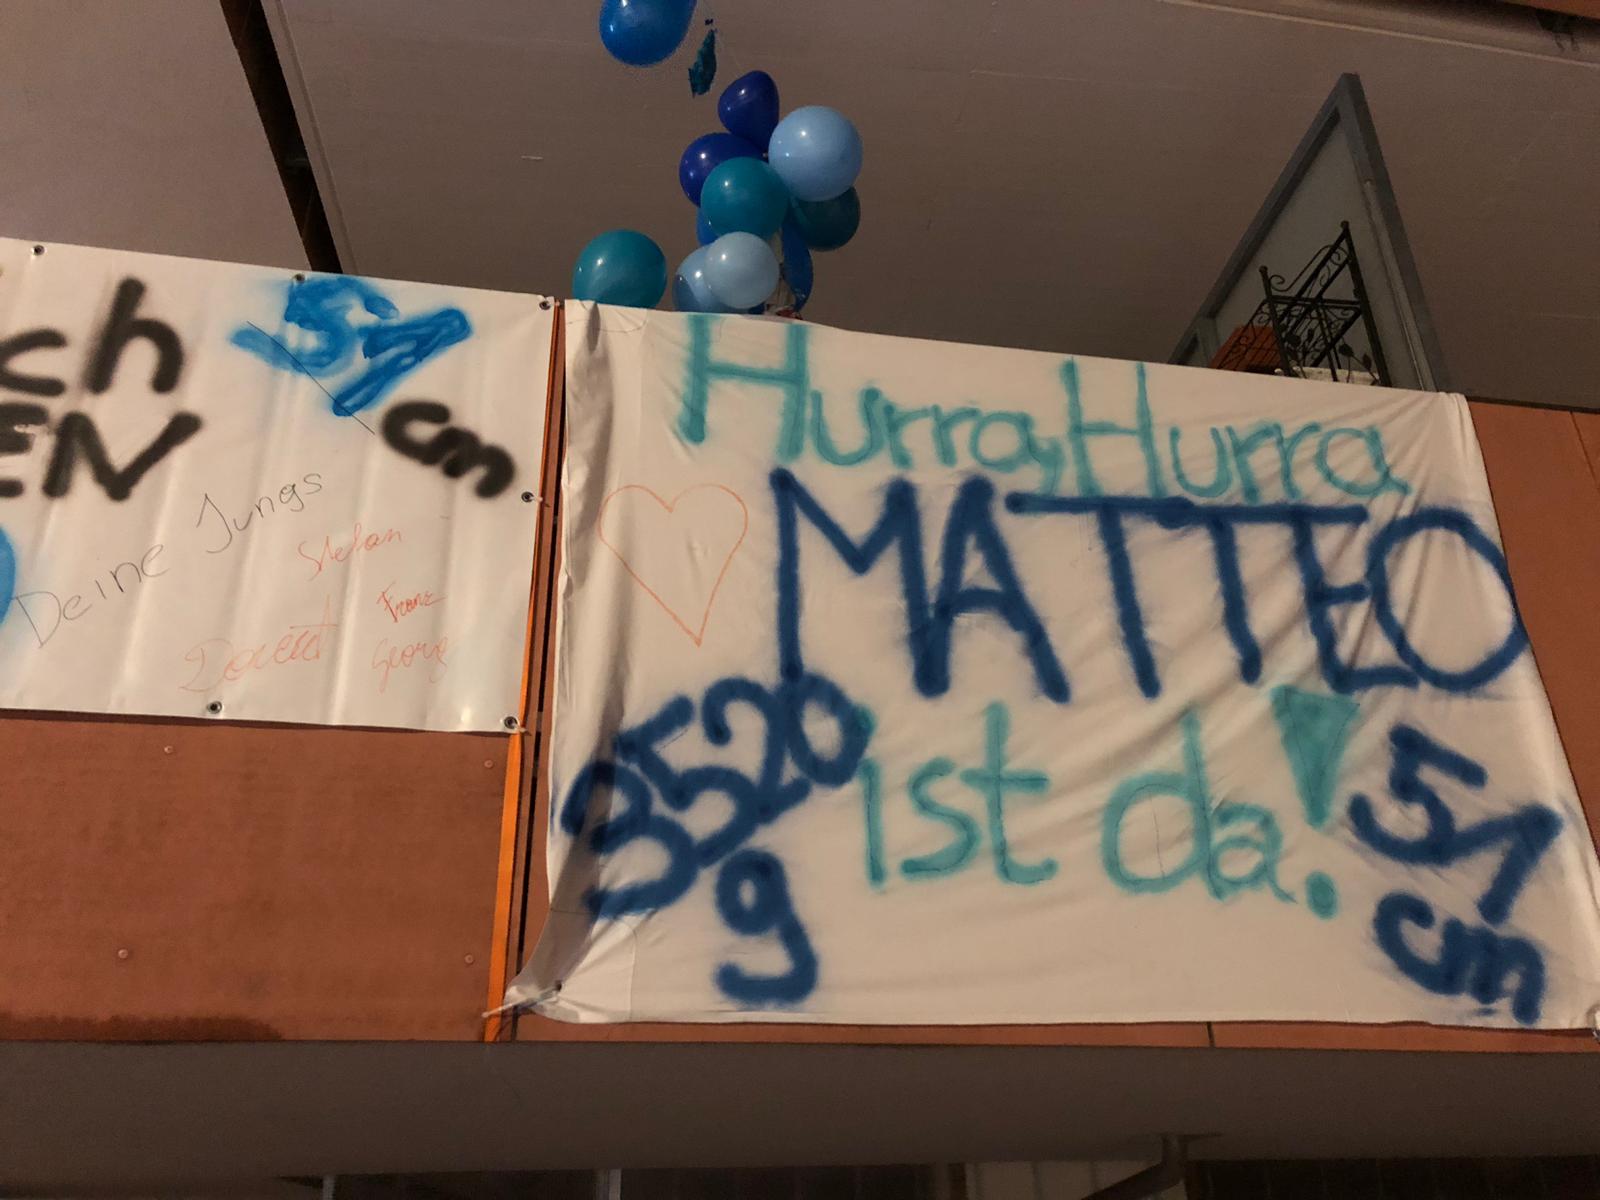 ch
EN
51
cm
Deine Jungs
Stefan
Franz
Georg
Hurra, Hurra
MATTEO
ist da!
3520
g
51
cm